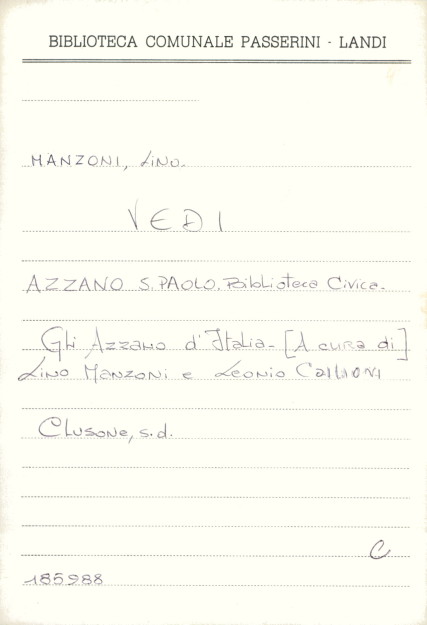 BIBLIOTECA COMUNALE PASSERINI - LANDI
MANZONI, Lino.
VEDI
AZZANO S. PAOLO. Biblioteca Civica.
Gli Azzano d'Italia - [A cura di]
Lino Manzoni e Leonio
Clusone, s.d.
C
185988